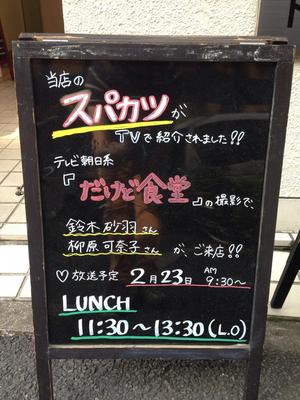 当店の
スパカツが
TVで紹介されました!!
テレビ朝日系
『だけど食堂』の撮影で、
鈴木砂羽さん
柳原可奈子さん が、ご来店!!
♡放送予定 2月23日 AM 9:30～
LUNCH
11:30～13:30(L.O)